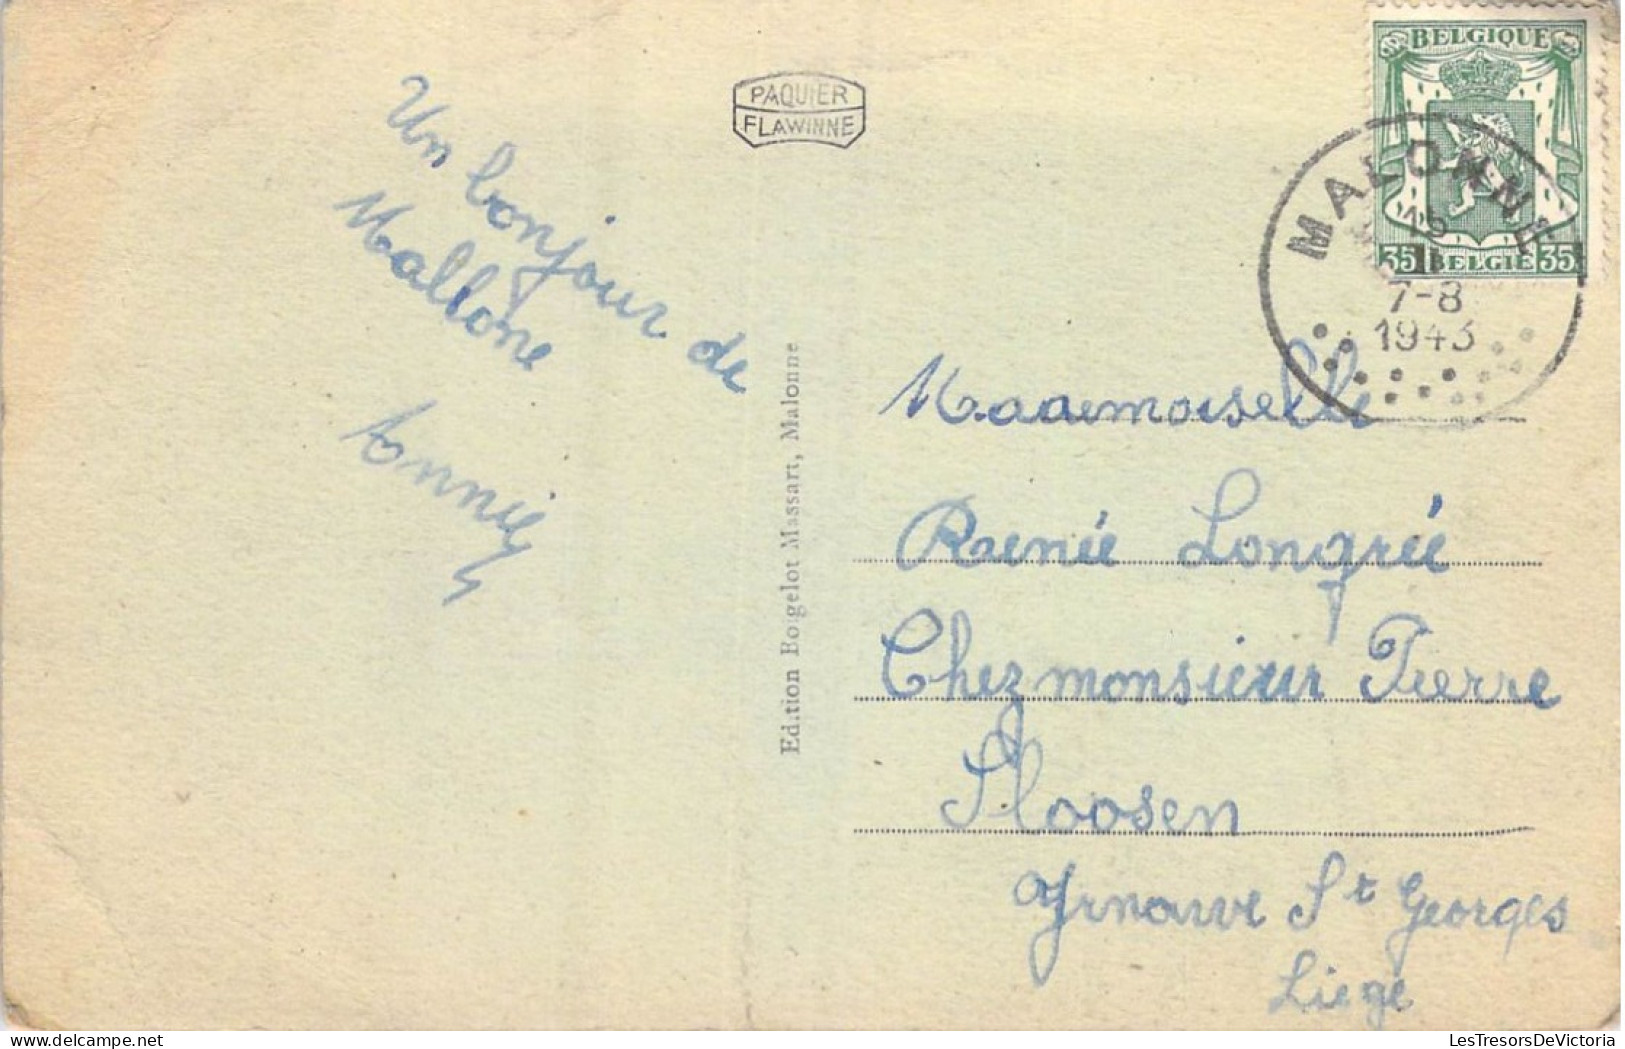 Un bonjour de
Mallone
Annie
PAQUIER
FLAWINNE
Edition Bogelot Massart, Malonne
BELGIQUE
35 BELGIË 35
MALONNE
7-8
1943
Mademoiselle
Renée Longrée
Chez monsieur Pierre
St Georges
Liege